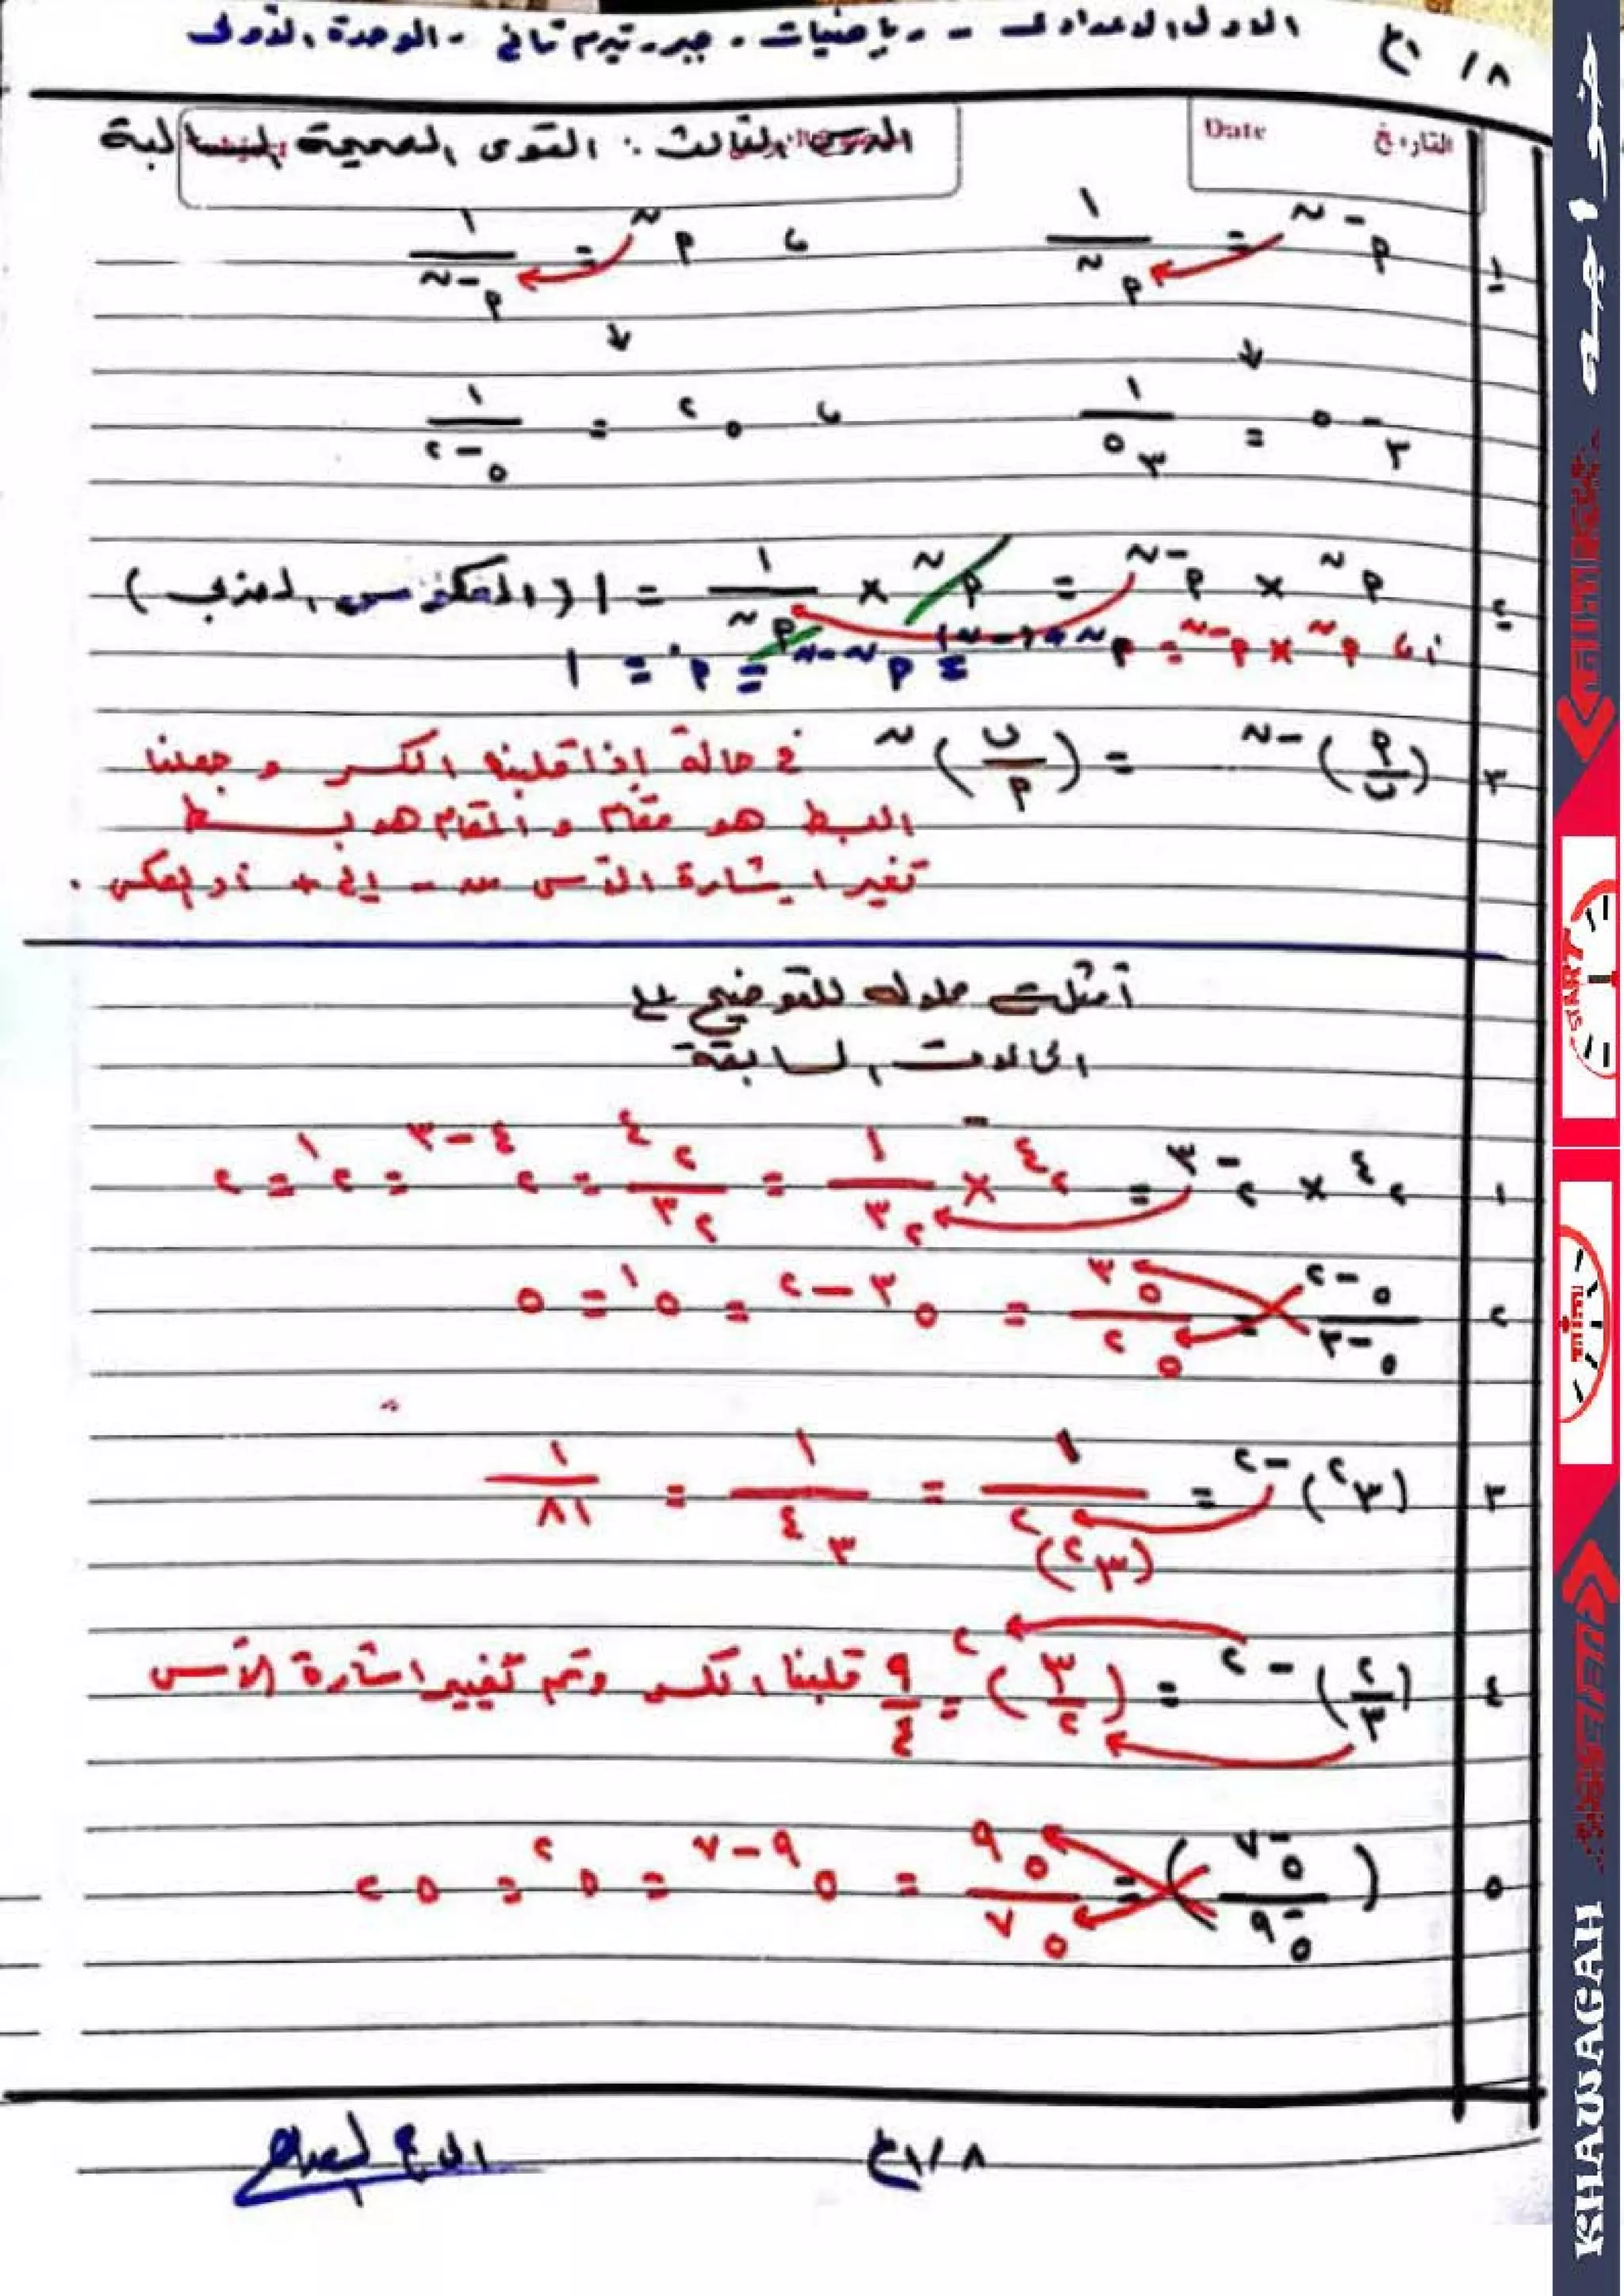 ١/٨ ع الأول الاعدادى - - رياضيات - جبر - تيرم ثانى - الوحدة الأولى
التاريخ Date
الدرس الثالث : القوى الصحيحة السالبة
١- م^-ن = ١/م^ن ، م^ن = ١/م^-ن
↓ ↓
٣^-٥ = ١/٣^٥ ، ٥^٢ = ١/٥^-٢
٢- م^ن × م^-ن = م^ن × ١/م^ن = ١ (المعكوس الضربى)
م^ن × م^-ن = م^ن+(-ن) = م^ن-ن = م^٠ = ١
٣ (م/ب)^-ن = (ب/م)^ن فى حالة إذا قلبنا الكسر و جعلنا
البسط هو مقام و المقام هو بسط
تغير إشارة الأس من - إلى + أو العكس .
أمثلة محلولة للتوضيح على
الحالات السابقة
١ ٢^٤ × ٢^-٣ = ٢^٤ × ١/٢^٣ = ٢^٤/٢^٣ = ٢^٤-٣ = ٢^١ = ٢
٢ ٥^-٢/٥^-٣ = ٥^٣/٥^٢ = ٥^٣-٢ = ٥^١ = ٥
٣ (٣^٢)^-٢ = ١/(٣^٢)^٢ = ١/٣^٤ = ١/٨١
٤ (٢/٣)^-٢ = (٣/٢)^٢ = ٩/٤ قلبنا الكسر وتم تغيير اشارة الأس
٥ (٥^-٧/٥^-٩) = ٥^٩/٥^٧ = ٥^٩-٧ = ٥^٢ = ٢٥
١/٨ ع
KHAWAGAH
خواجه
START